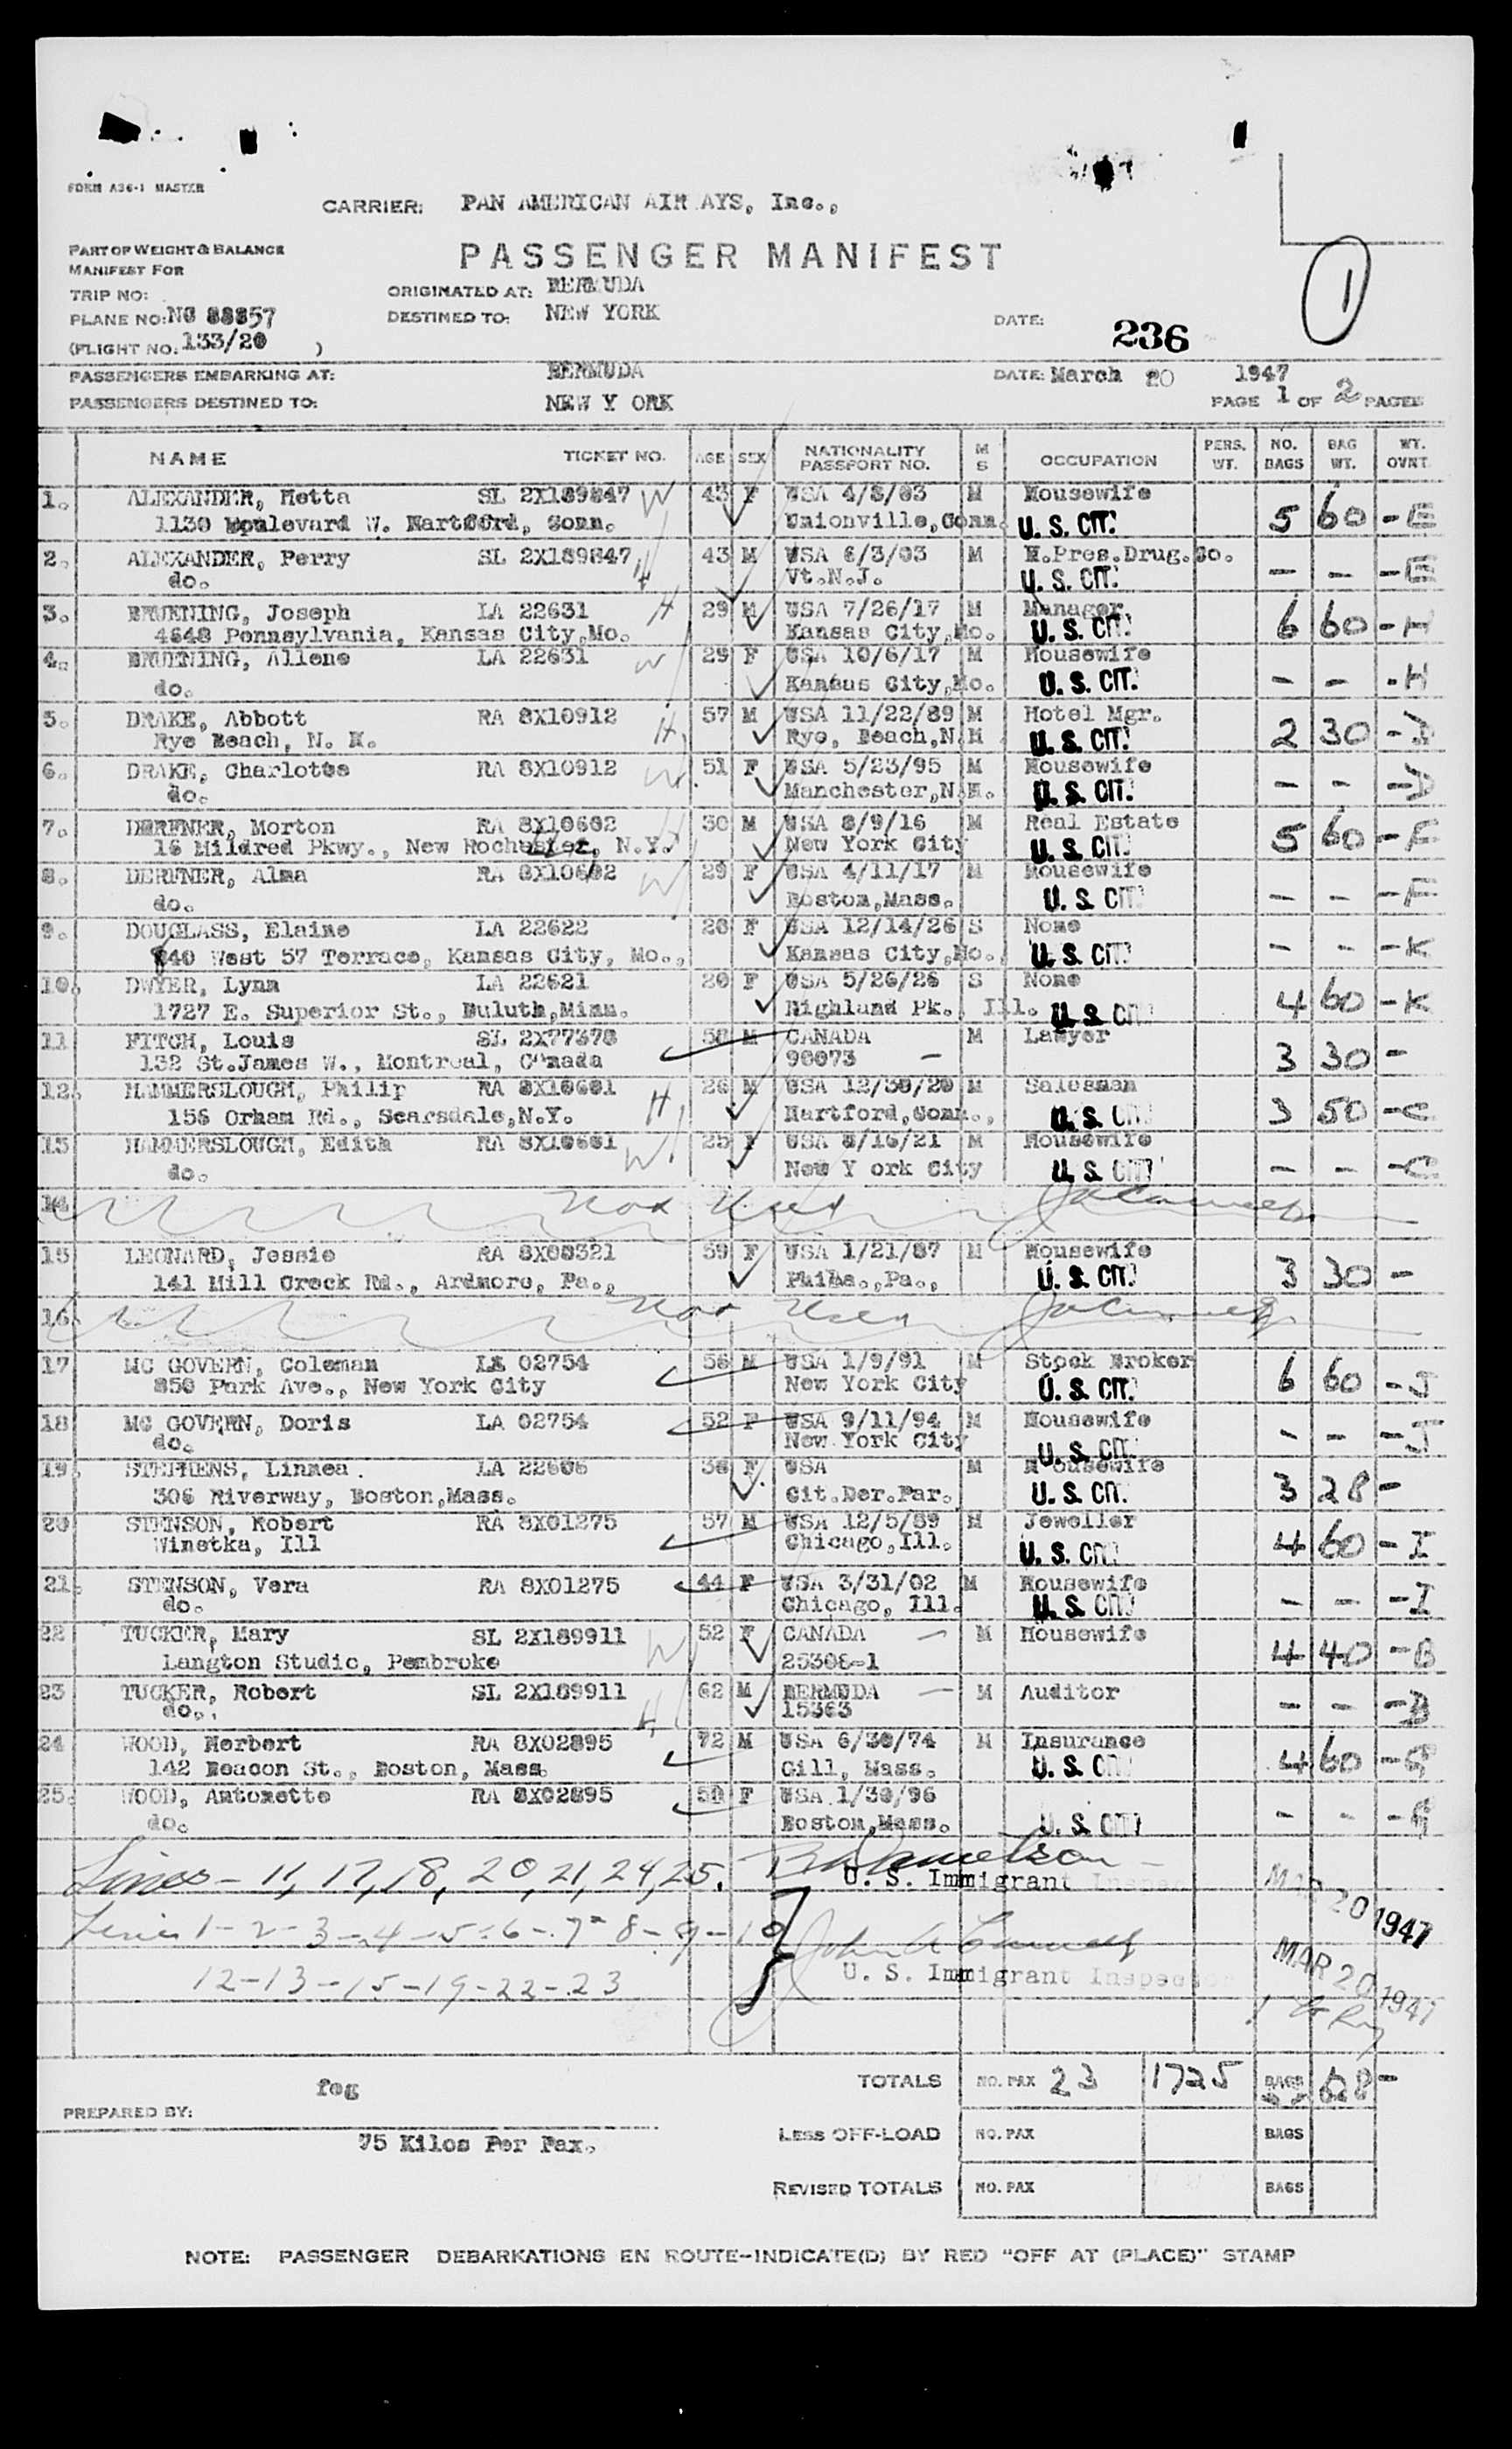 FORM A36-1 MASTER
CARRIER: PAN AMERICAN AIR AYS, Inc.,
PART OF WEIGHT & BALANCE
MANIFEST FOR
PASSENGER MANIFEST
TRIP NO:
ORIGINATED AT: BERMUDA
PLANE NO: NC 88857
DESTINED TO: NEW YORK
DATE: 236
1
(FLIGHT NO: 133/20 )
PASSENGERS EMBARKING AT: BERMUDA DATE: March 20 1947
PASSENGERS DESTINED TO: NEW Y ORK PAGE 1 OF 2 PAGES
NAME TICKET NO. AGE SEX NATIONALITY PASSPORT NO. M S OCCUPATION PERS. WT. NO. BAGS BAG WT. WT. OVNT.
1. ALEXANDER, Metta SL 2X189847 W 43 F USA 4/8/03 M Housewife
1130 Boulevard W. Hartford, Conn. Unionville,Conn. U. S. CIT. 5 60 - E
2. ALEXANDER, Perry SL 2X189847 H 43 M USA 6/3/03 M V.Pres.Drug.Co.
do. Vt.N.J. U. S. CIT. - - - E
3. BRUENING, Joseph LA 22631 H 29 M USA 7/26/17 M Manager
4648 Pennsylvania, Kansas City,Mo. Kansas City,Mo. U. S. CIT. 6 60 - H
4. BRUENING, Allene LA 22631 W 29 F USA 10/6/17 M Housewife
do. Kansas City,Mo. U. S. CIT. - - - H
5. DRAKE, Abbott RA 8X10912 H 57 M USA 11/22/89 M Hotel Mgr.
Rye Beach, N. H. Rye, Beach,N.H U. S. CIT. 2 30 - D
6. DRAKE, Charlotte RA 8X10912 W 51 F USA 5/23/95 M Housewife
do. Manchester,N.H. U. S. CIT. - - - D
7. DERFNER, Morton RA 8X10602 H 30 M USA 8/9/16 M Real Estate
16 Mildred Pkwy., New Rochester, N.Y. New York City U. S. CIT. 5 60 - F
8. DERFNER, Alma RA 8X10602 W 29 F USA 4/11/17 M Housewife
do. Boston,Mass. U. S. CIT. - - - F
9. DOUGLASS, Elaine LA 22622 20 F USA 12/14/26 S None
840 West 57 Terrace, Kansas City, Mo., Kansas City,Mo. U. S. CIT. - - - K
10. DWYER, Lynn LA 22621 20 F USA 5/26/26 S None
1727 E. Superior St., Duluth,Minn. Highland Pk., Ill. U. S. CIT. 4 60 - K
11 FITCH, Louis SL 2X77378 58 M CANADA M Lawyer
132 St.James W., Montreal, Canada 90073 - 3 30 -
12. HAMMERSLOUGH, Philip RA 8X10601 H 26 M USA 12/30/20 M Salesman
156 Orham Rd., Scarsdale,N.Y. Hartford,Conn., U. S. CIT. 3 50 - C
13 HAMMERSLOUGH, Edith RA 8X10601 W 25 F USA 8/16/21 M Housewife
do. New Y ork City U. S. CIT. - - - C
14 Not Used
15 LEONARD, Jessie RA 8X08321 59 F USA 1/21/87 M Housewife
141 Mill Creek Rd., Ardmore, Pa., Phila.,Pa., U. S. CIT. 3 30 -
16 Not Used
17 MC GOVERN, Coleman LA 02754 56 M USA 1/9/91 M Stock Broker
850 Park Ave., New York City New York City U. S. CIT. 6 60 - J
18 MC GOVERN, Doris LA 02754 52 F USA 9/11/94 M Housewife
do. New York City U. S. CIT. - - - J
19 STEPHENS, Linnea. LA 22606 36 F USA M H ousewife
306 Riverway, Boston,Mass. Cit.Der.Par. U. S. CIT. 3 28 -
20 STENSON, Robert RA 8X01275 57 M USA 12/5/89 M Jeweller
Winetka, Ill Chicago,Ill. U. S. CIT. 4 60 - I
21. STENSON, Vera RA 8X01275 44 F USA 3/31/02 M Housewife
do. Chicago, Ill. U. S. CIT. - - - I
22 TUCKER, Mary SL 2X189911 W 52 F CANADA - M Housewife
Langton Studio, Pembroke 25308-1 4 40 - B
23 TUCKER, Robert SL 2X189911 H 62 M BERMUDA - M Auditor
do., 15363 - - - B
24 WOOD, Herbert RA 8X02895 72 M USA 6/30/74 M Insurance
142 Beacon St., Boston, Mass. Gill, Mass. U. S. CIT. 4 60 - G
25. WOOD, Antonette RA 8X02895 50 F USA 1/30/96
do. Boston,Mass. U. S. CIT. - - - G
Lines - 11, 17, 18, 20, 21, 24, 25.
U. S. Immigrant Inspec
MAR 20 1947
Lines 1-2-3-4-5-6-7-8-9-10
12-13-15-19-22-23
U. S. Immigrant Inspector
MAR 20 1947
TOTALS NO. PAX 23 1725 BAGS 628 -
feg
PREPARED BY:
75 Kilos Per Pax.
LESS OFF-LOAD NO. PAX BAGS
REVISED TOTALS NO. PAX BAGS
NOTE: PASSENGER DEBARKATIONS EN ROUTE-INDICATE(D) BY RED "OFF AT (PLACE)" STAMP